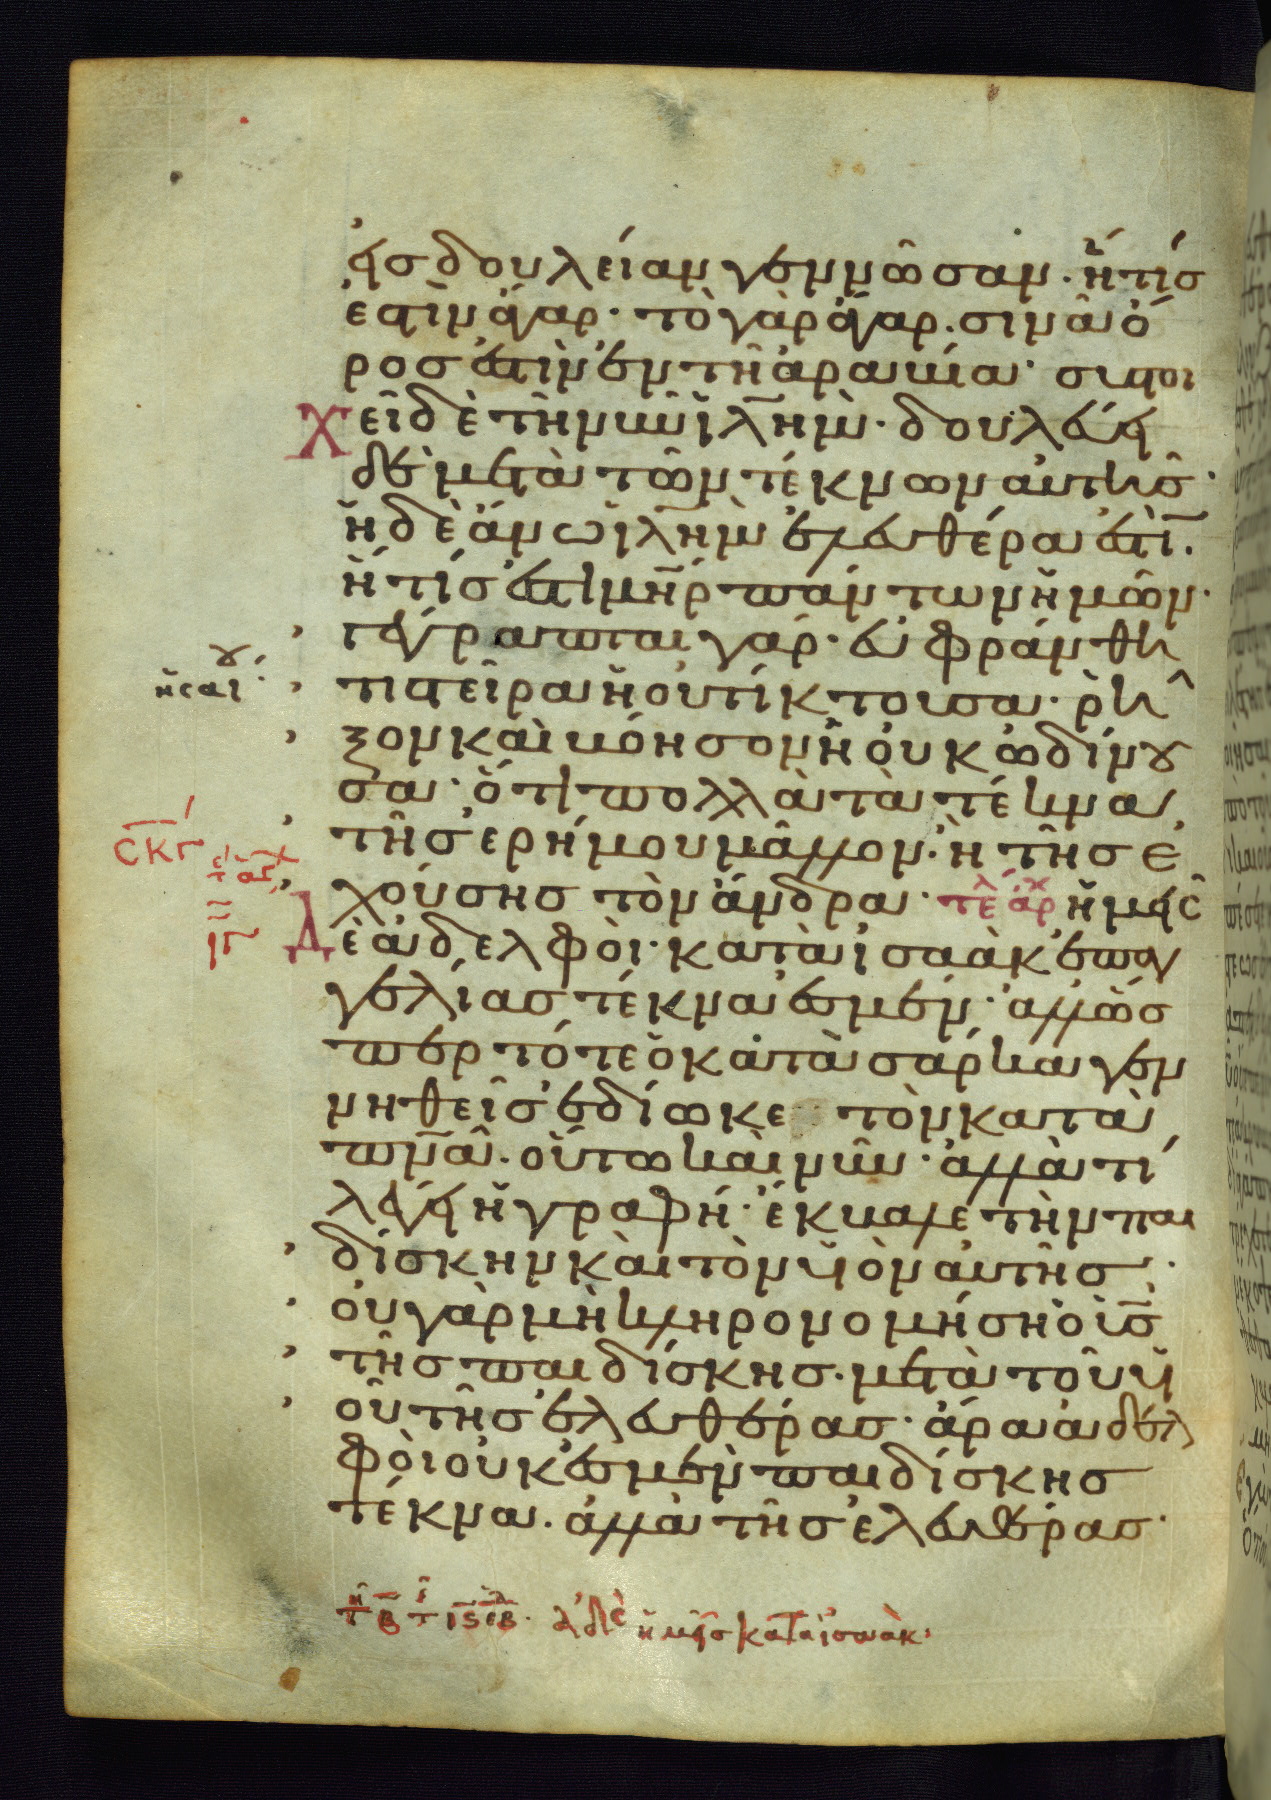 εἰς δουλείαν γεννῶσαν· ἥτίς
ἐστὶν ἄγαρ· τὸ γὰρ ἄγαρ. σινᾶ ὄ
ρος ἐστὶν ἐν τῆ ἀραβία· συστοι
χεῖ δὲ τῆ νῦν ἰλῆμ· δουλεύει
δὲ μετὰ τῶν τέκνων αὐτῆς·
ἡ δὲ ἄνω ἰλὴμ ἐλευθέρα ἐστὶ.
ἥτίς ἐστι μῆρ πάντων ἡμῶν·
γέγραπται γάρ· εὐφράνθη
ἡσαΐου
τι στεῖρα ἡ οὐ τίκτουσα· ῥῆ
ξον καὶ βόησον ἡ οὐκ ὠδίνου
σα· ὅτι πολλὰ τὰ τέκνα
τῆς ἐρήμου μᾶλλον· ἢ τῆς ἐ
σκγ
χούσης τὸν ἄνδρα· τελ ἀρχ ἡμεῖς
ιγ
δὲ ἀδελφοὶ· κατὰ ἰσαὰκ ἐπαγ
γελίας τέκνα ἐσμέν· ἀλλ ὥς
περ τότε ὁ κατὰ σάρκα γεν
νηθεὶς ἐδίωκε τὸν κατὰ
πνᾶ. οὕτω καὶ νῦν· ἀλλὰ τί
λέγει ἡ γραφή· ἔκβαλε τὴν παι
δίσκην καὶ τὸν υἱὸν αὐτῆς·
οὐ γὰρ μὴ κληρονομήση ὁ υἱς
τῆς παιδίσκης· μετὰ τοῦ υἱ
οῦ τῆς ἐλευθέρας· ἄρα ἀδελ
φοὶ οὐκ ἐσμὲν παιδίσκης
τέκνα. ἀλλὰ τῆς ἐλευθέρας·
ἀδε ἡμεῖς κατὰ ἰσαὰκ·